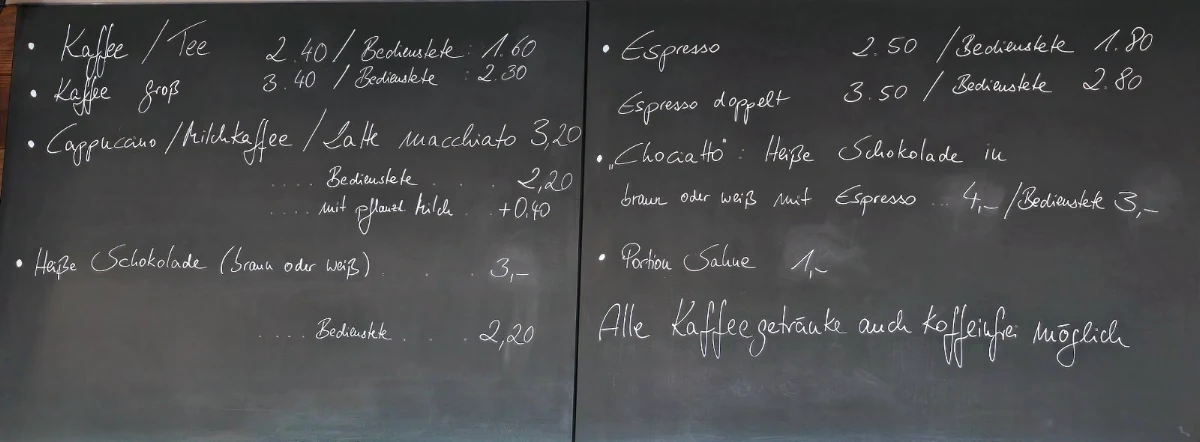 • Kaffee / Tee 2.40 / Bedienstete : 1.60
• Kaffee groß 3.40 / Bedienstete : 2.30
• Cappuccino / Milchkaffee / Latte macchiato 3,20
.... Bedienstete .... 2,20
.... mit pflanzl. Milch . +0,40
• Heiße Schokolade (braun oder weiß) .... 3,–
.... Bedienstete .... 2,20
• Espresso 2.50 / Bedienstete 1.80
Espresso doppelt 3.50 / Bedienstete 2.80
• „Chociatto": Heiße Schokolade in
braun oder weiß mit Espresso ... 4,– / Bedienstete 3,–
• Portion Sahne 1,–
Alle Kaffeegetränke auch koffeinfrei möglich